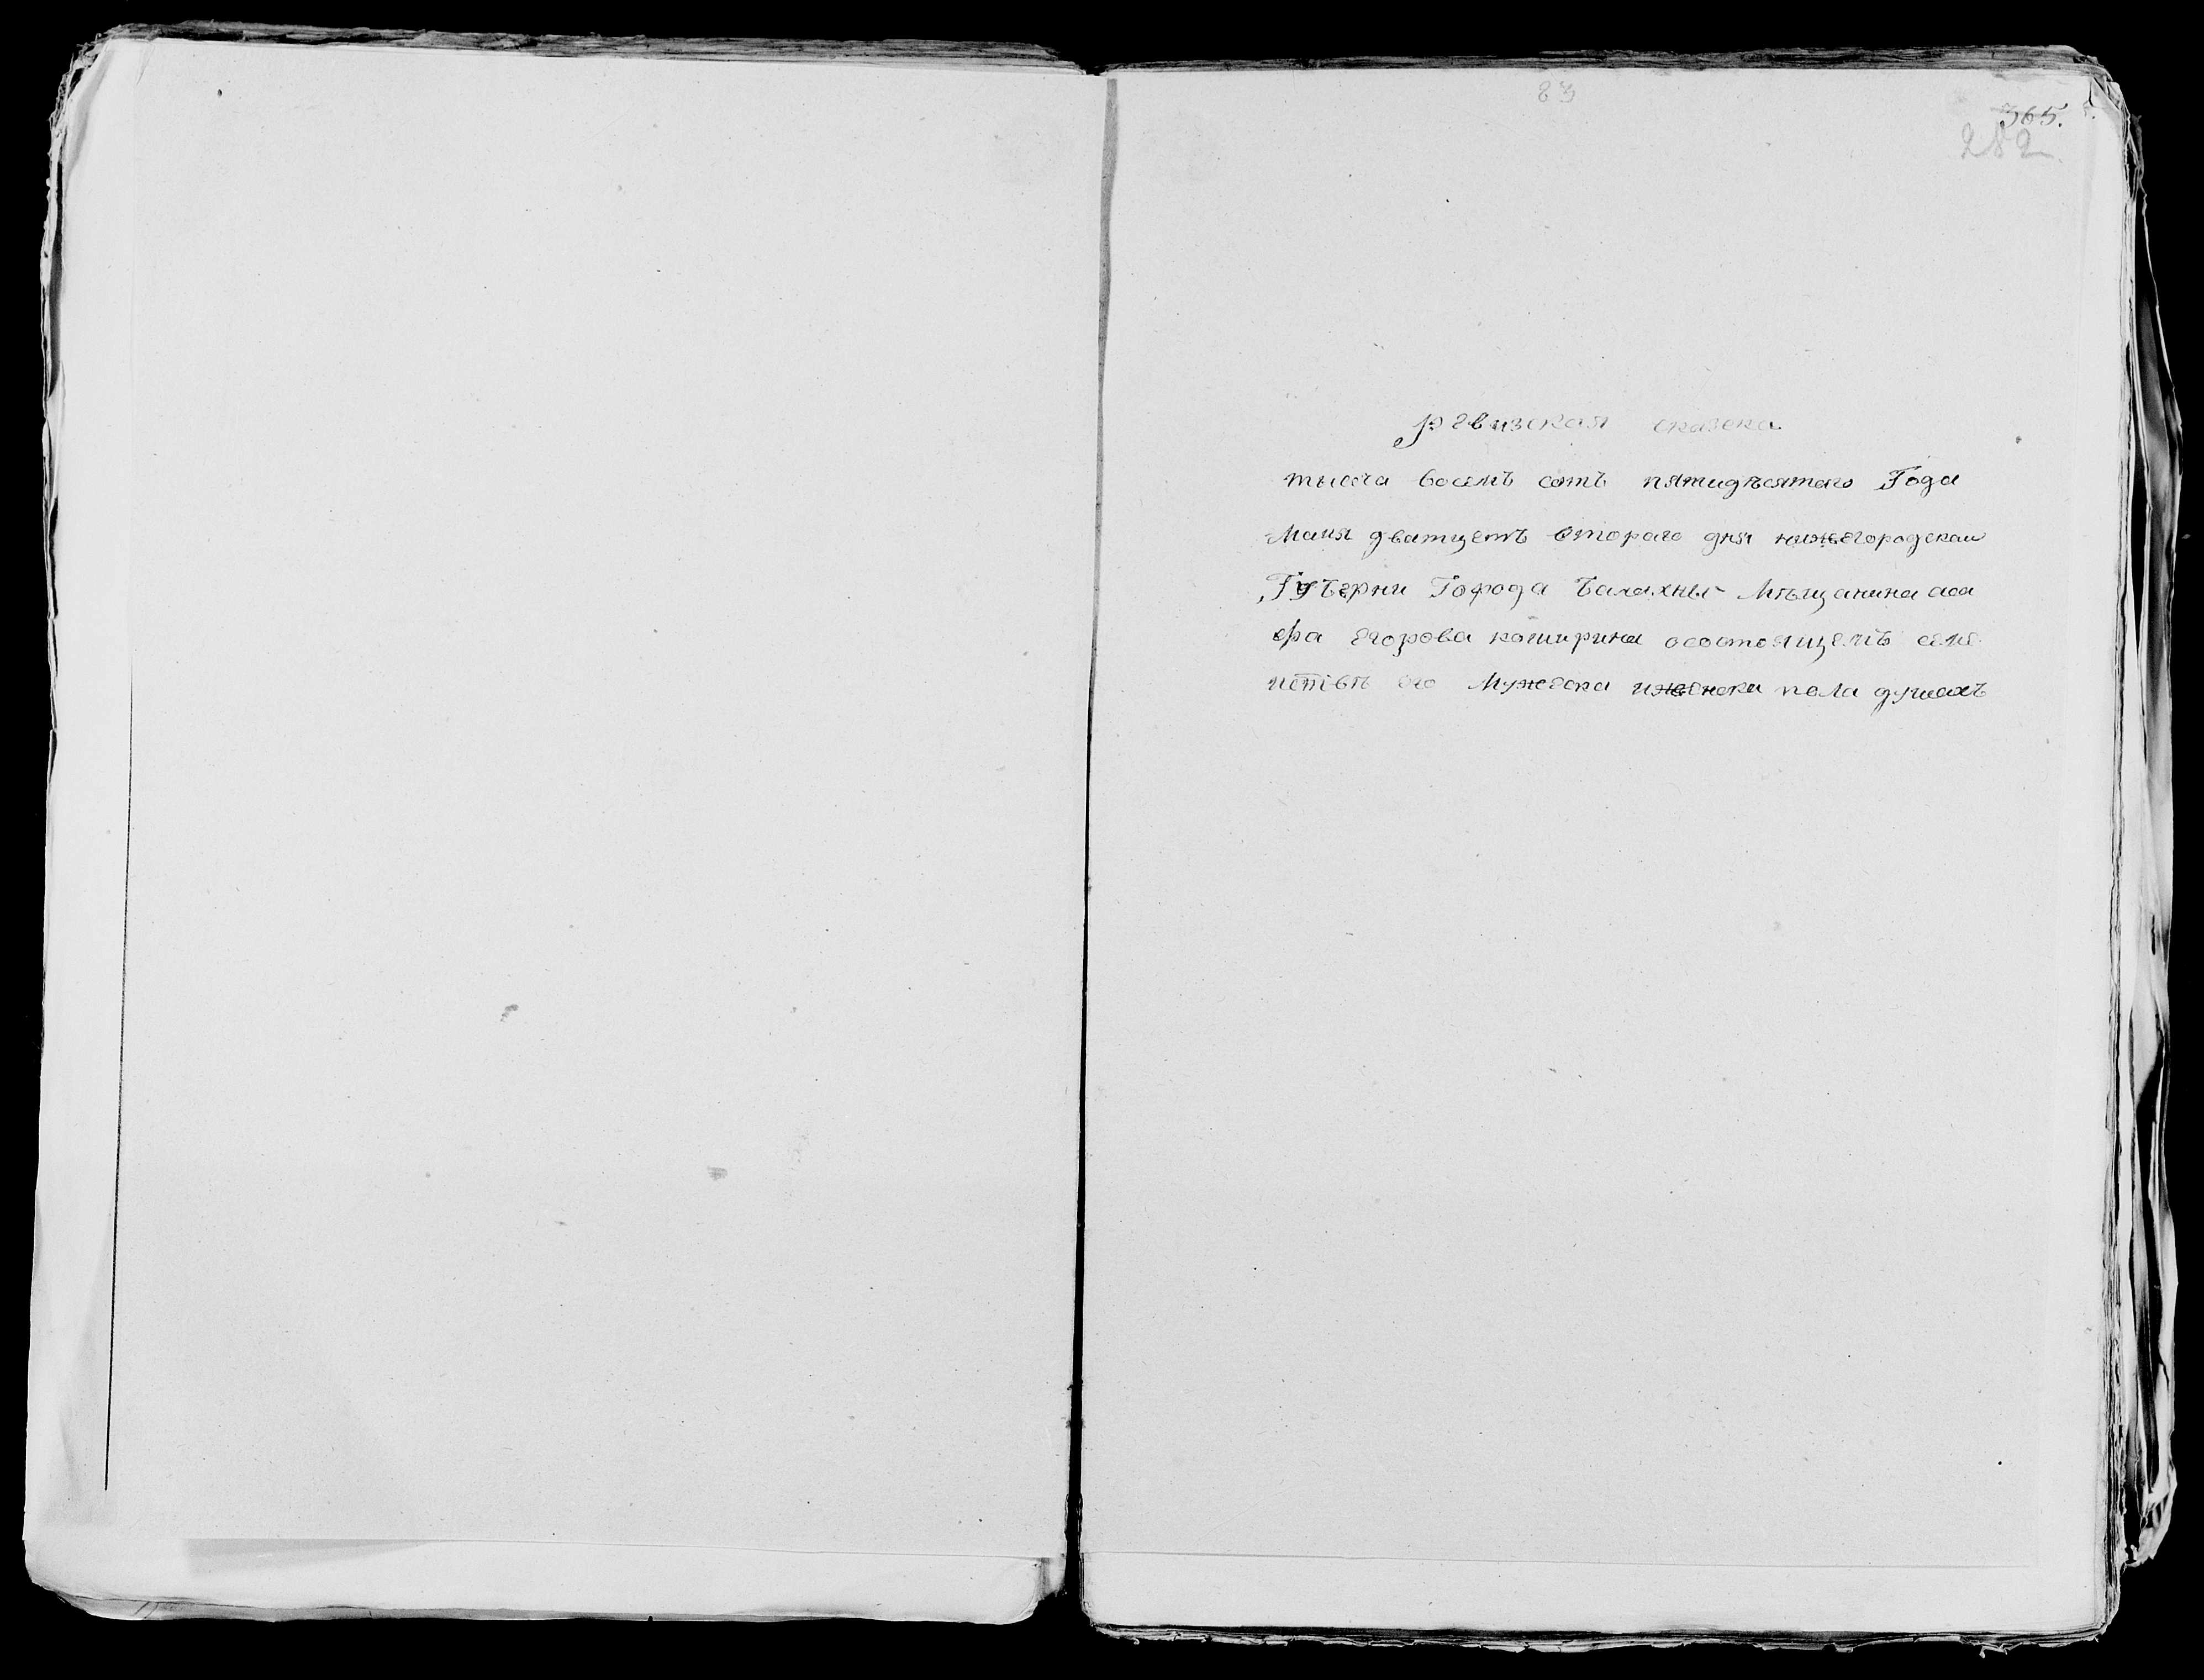 83
365.
282
ревизская сказска
тысеча восемъ сотъ пятидѣсятаго Года
Маия дватцетъ второго дня нижегородскаи
Губерни Города балахны Мѣщанина аса
фа егорова коширина осостоящемъ семе
иствѣ его Мужеска иженска пола душахъ